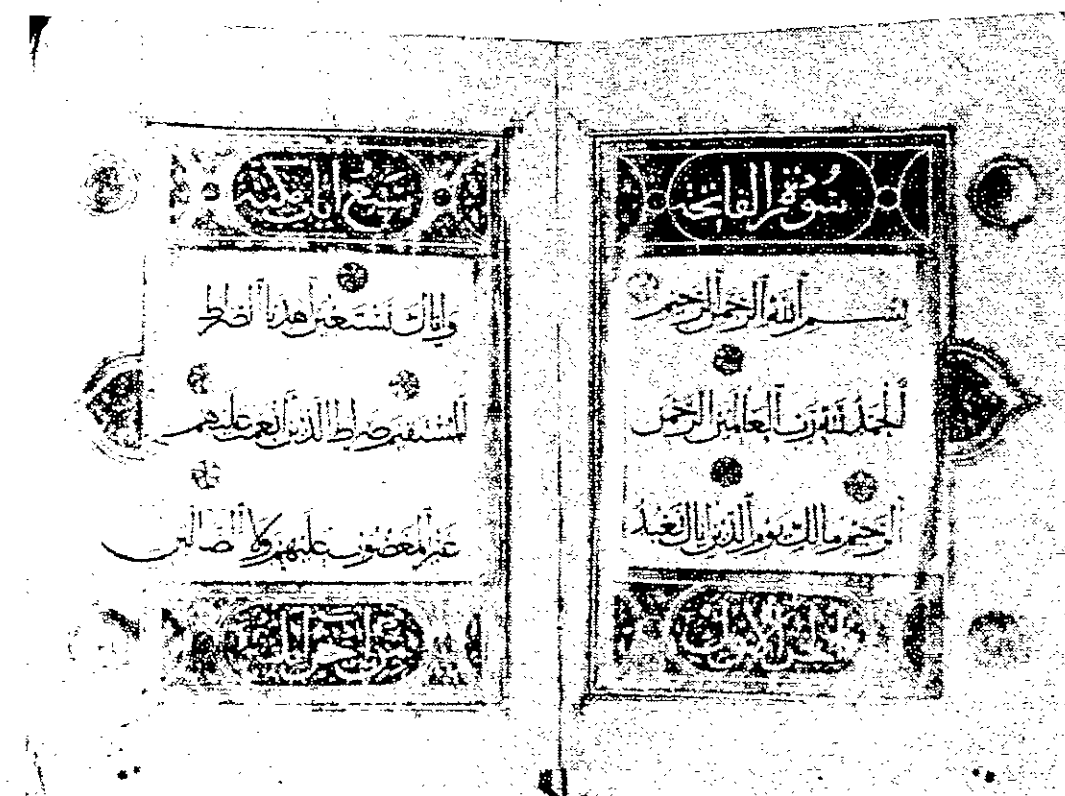 سورة الفاتحة
بسم الله الرحمن الرحيم
الحمد لله رب العالمين الرحمن
الرحيم مالك يوم الدين إياك نعبد
سبع آيات مكية
وإياك نستعين اهدنا الصراط
المستقيم صراط الذين أنعمت عليهم
غير المغضوب عليهم ولا الضالين